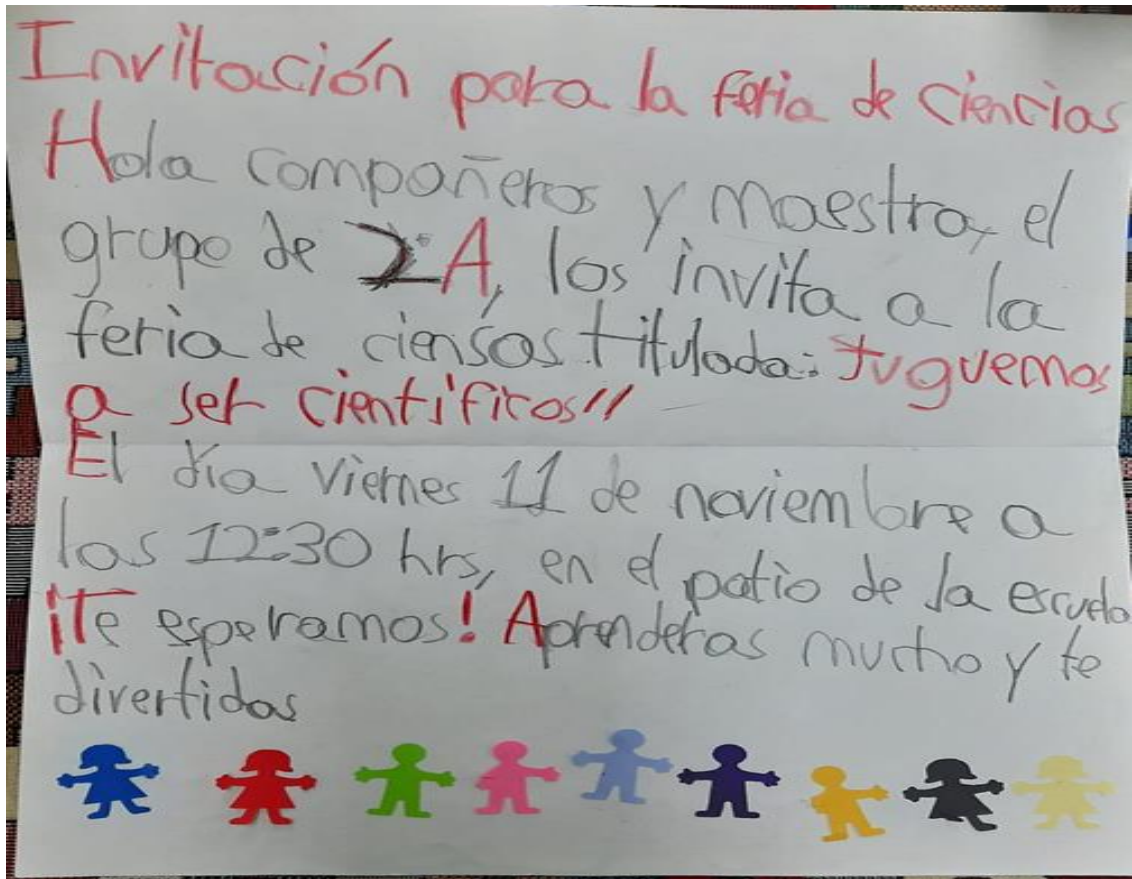 Invitación para la feria de ciencias
Hola compañeros y maestra, el
grupo de 2°A, los invita a la
feria de ciensas titulada: Juguemos
a ser científicos//
El día viernes 11 de noviembre a
las 12:30 hrs, en el patio de la escuela
¡Te esperamos! Aprenderas mucho y te
divertidas